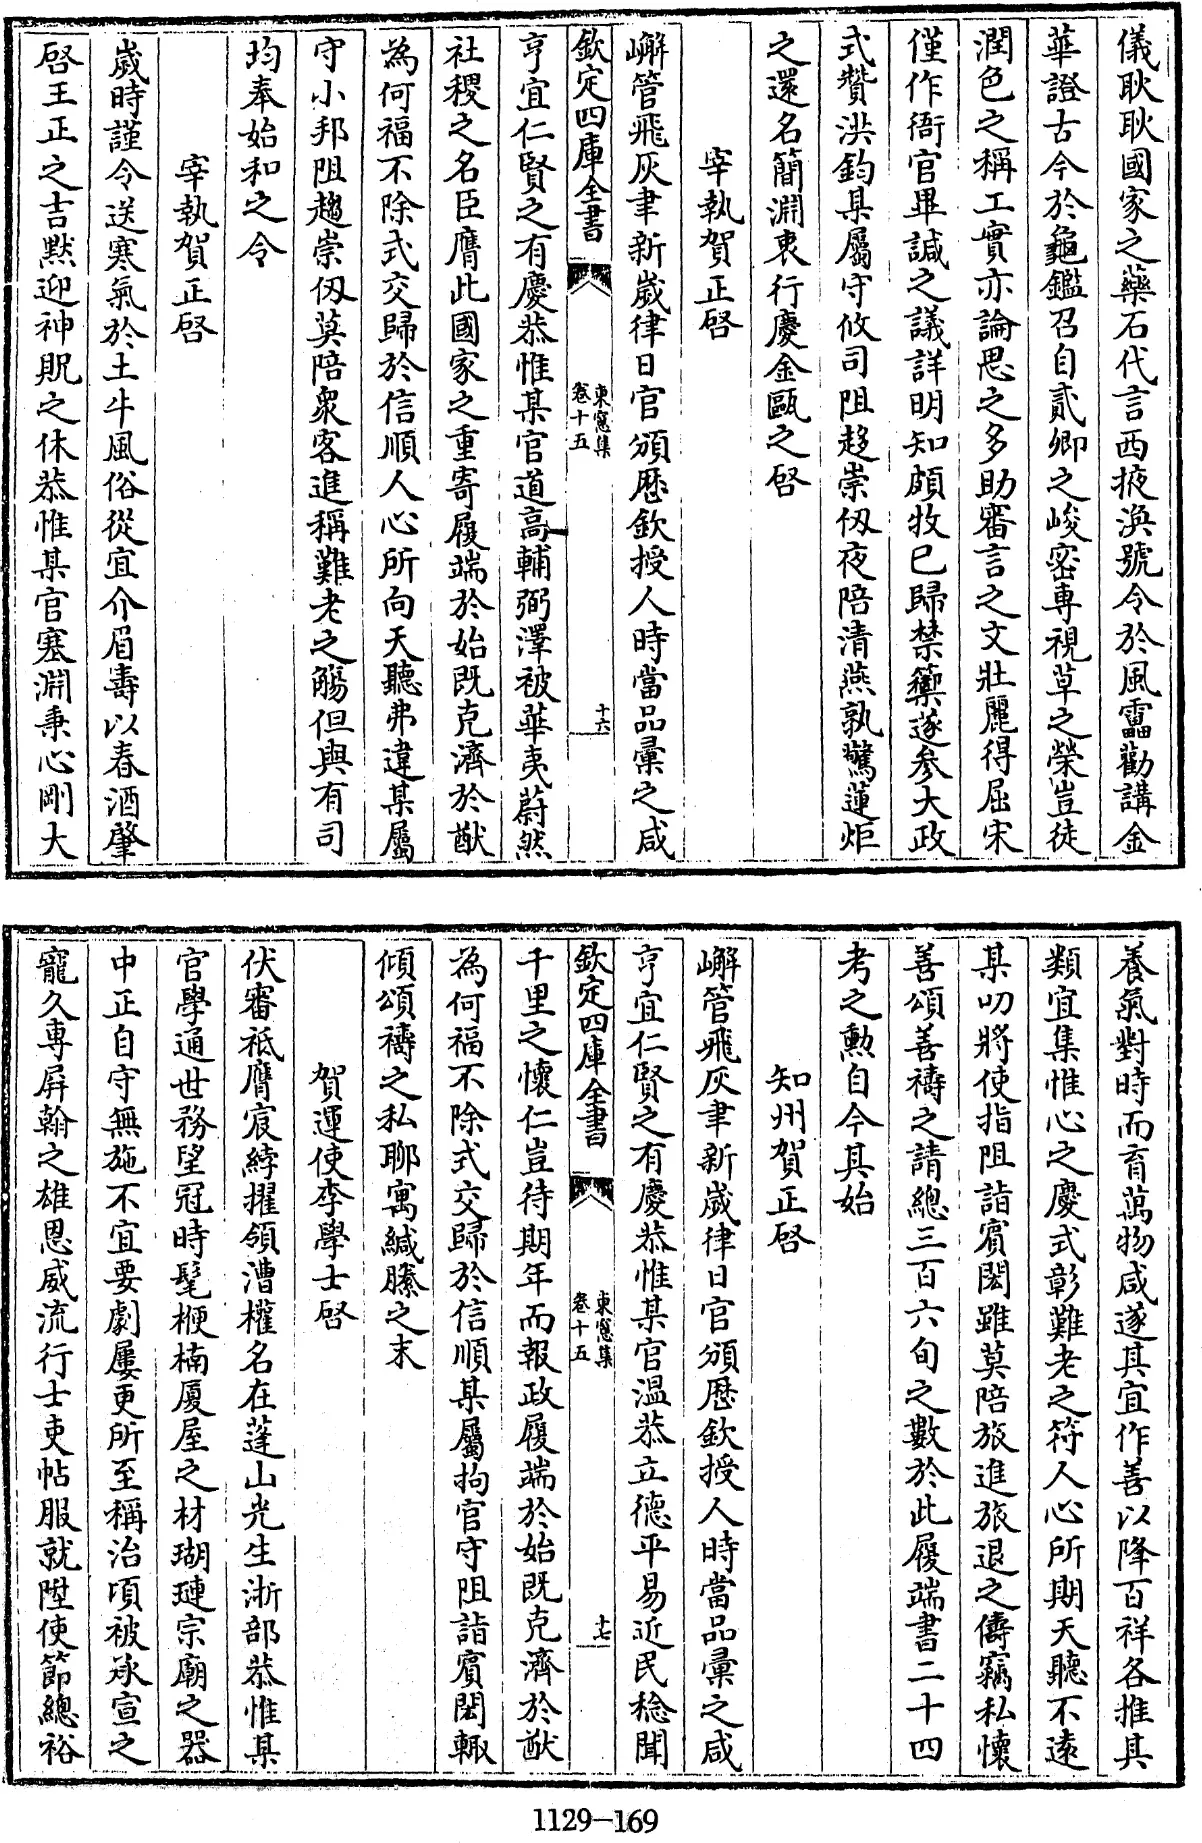 儀耿耿國家之藥石代言西掖渙號令於風霆勸講金
華證古今於龜鑑召自貳卿之峻密專視草之榮豈徒
潤色之稱工實亦論思之多助審言之文壯麗得屈宋
僅作衙官畢諴之議詳明知頗牧已歸禁籞遂參大政
式贊洪鈞某屬守攸司阻趍崇仭夜陪清燕孰驚蓮炬
之還名簡淵衷行慶金甌之啓
宰執賀正啓
嶰管飛灰聿新嵗律日官頒厯欽授人時當品彚之咸
欽定四庫全書
東窻集
卷十五
十六
亨宜仁賢之有慶恭惟某官道高輔弼澤被華夷蔚然
社稷之名臣膺此國家之重寄履端於始既克濟於猷
為何福不除式交歸於信順人心所向天聽弗違某屬
守小邦阻趨崇仭莫陪衆客進稱難老之觴但與有司
均奉始和之令
宰執賀正啓
嵗時謹令送寒氣於土牛風俗從宜介眉壽以春酒肇
啓王正之吉黙迎神貺之休恭惟某官塞淵秉心剛大
養氣對時而育萬物咸遂其宜作善以降百祥各推其
類宜集惟心之慶式彰難老之符人心所期天聽不逺
某叨將使指阻詣賓閎雖莫陪旅進旅退之儔竊私懷
善頌善禱之請總三百六旬之數於此履端書二十四
考之勲自今其始
知州賀正啓
嶰管飛灰聿新嵗律日官頒厯欽授人時當品彚之咸
亨宜仁賢之有慶恭惟某官温恭立德平易近民稔聞
欽定四庫全書
東窻集
卷十五
十七
千里之懷仁豈待期年而報政履端於始既克濟於猷
為何福不除式交歸於信順某屬拘官守阻詣賓閎輙
傾頌禱之私聊寓緘縢之末
賀運使李學士啓
伏審祗膺宸綍擢領漕權名在蓬山光生浙部恭惟某
官學通世務望冠時髦楩楠厦屋之材瑚璉宗廟之器
中正自守無施不宜要劇屢更所至稱治頃被承宣之
寵久專屏翰之雄恩威流行士吏帖服就陞使節總裕
1129-169